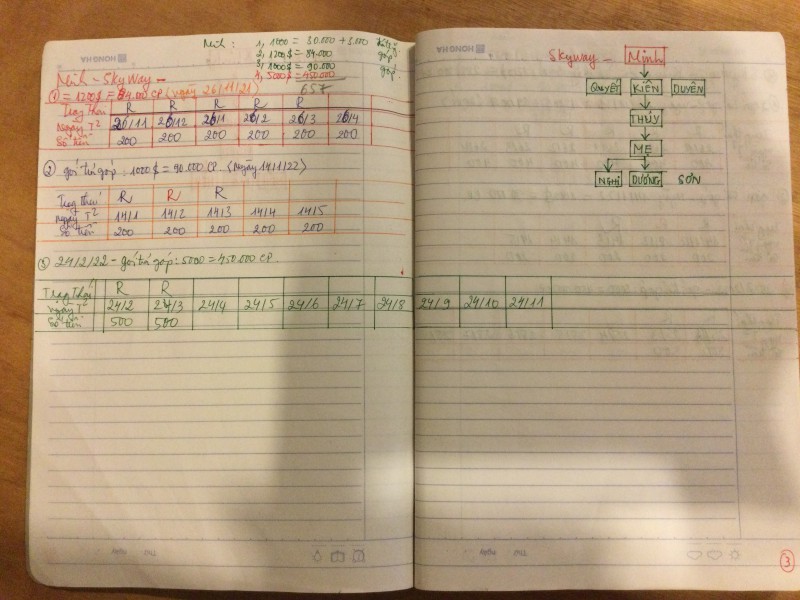 Minh : 1, 1000 = 30.000 + 3.000
2, 1200$ = 84.000 góp
3, 1000$ = 90.000 góp
4, 5000$ = 450.000
657
Minh - SkyWay -
① = 1200$ = 84.000 CP (ngày 26/11/21)
Trạng thái R R R R R
Ngày T² 26/11 26/12 26/1 26/2 26/3 26/4
Số tiền 200 200 200 200 200 200
② gói trả góp : 1000$ = 90.000 CP (Ngày 14/1/22)
Trạng thái R R R
Ngày T² 14/1 14/2 14/3 14/4 14/5
Số tiền 200 200 200 200 200
③ 24/2/22 - gói trả góp : 5000 = 450.000 CP
Trạng thái R R
Ngày T² 24/2 24/3 24/4 24/5 24/6 24/7 24/8 24/9 24/10 24/11
Số tiền 500 500
Skyway - Minh
QUYẾT KIÊN DUYÊN
THÚY
MẸ
NGHĨ DƯƠNG SƠN
3